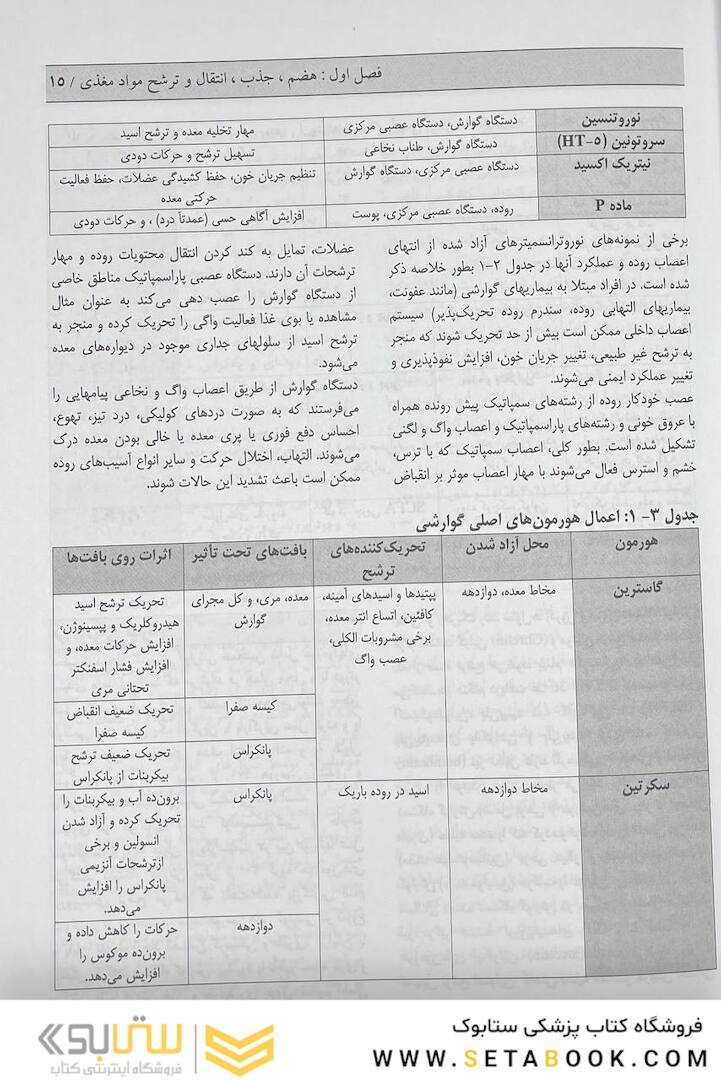 فصل اول : هضم ، جذب ، انتقال و ترشح مواد مغذی / ۱۵
نوروتنسین
دستگاه گوارش، دستگاه عصبی مرکزی
مهار تخلیه معده و ترشح اسید
سروتونین (HT-۵)
دستگاه گوارش، طناب نخاعی
تسهیل ترشح و حرکات دودی
نیتریک اکسید
دستگاه عصبی مرکزی، دستگاه گوارش
تنظیم جریان خون، حفظ کشیدگی عضلات، حفظ فعالیت
حرکتی معده
ماده P
روده، دستگاه عصبی مرکزی، پوست
افزایش آگاهی حسی (عمدتاً درد) ، و حرکات دودی
برخی از نمونه‌های نوروترانسمیترهای آزاد شده از انتهای
اعصاب روده و عملکرد آنها در جدول ۲-۱ بطور خلاصه ذکر
شده است. در افراد مبتلا به بیماریهای گوارشی (مانند عفونت،
بیماریهای التهابی روده، سندرم روده تحریک‌پذیر) سیستم
اعصاب داخلی ممکن است بیش از حد تحریک شوند که منجر
به ترشح غیر طبیعی، تغییر جریان خون، افزایش نفوذپذیری و
تغییر عملکرد ایمنی می‌شوند.
عصب خودکار روده از رشته‌های سمپاتیک پیش رونده همراه
با عروق خونی و رشته‌های پاراسمپاتیک و اعصاب واگ و لگنی
تشکیل شده است. بطور کلی، اعصاب سمپاتیک که با ترس،
خشم و استرس فعال می‌شوند با مهار اعصاب موثر بر انقباض
عضلات، تمایل به کند کردن انتقال محتویات روده و مهار
ترشحات آن دارند. دستگاه عصبی پاراسمپاتیک مناطق خاصی
از دستگاه گوارش را عصب دهی می‌کند به عنوان مثال
مشاهده یا بوی غذا فعالیت واگی را تحریک کرده و منجر به
ترشح اسید از سلولهای جداری موجود در دیواره‌های معده
می‌شود.
دستگاه گوارش از طریق اعصاب واگ و نخاعی پیامهایی را
می‌فرستند که به صورت دردهای کولیکی، درد تیز، تهوع،
احساس دفع فوری یا پری معده یا خالی بودن معده درک
می‌شوند. التهاب، اختلال حرکت و سایر انواع آسیب‌های روده
ممکن است باعث تشدید این حالات شوند.
جدول ۳- ۱: اعمال هورمون‌های اصلی گوارشی
هورمون
محل آزاد شدن
تحریک‌کننده‌های
ترشح
بافت‌های تحت تأثیر
اثرات روی بافت‌ها
گاسترین
مخاط معده، دوازدهه
پپتیدها و اسیدهای آمینه،
کافئین، اتساع انتر معده،
برخی مشروبات الکلی،
عصب واگ
معده، مری، و کل مجرای
گوارش
تحریک ترشح اسید
هیدروکلریک و پپسینوژن،
افزایش حرکات معده، و
افزایش فشار اسفنکتر
تحتانی مری
کیسه صفرا
تحریک ضعیف انقباض
کیسه صفرا
پانکراس
تحریک ضعیف ترشح
بیکربنات از پانکراس
سکرتین
مخاط دوازدهه
اسید در روده باریک
پانکراس
برون‌ده آب و بیکربنات را
تحریک کرده و آزاد شدن
انسولین و برخی
ازترشحات آنزیمی
پانکراس را افزایش
می‌دهد.
دوازدهه
حرکات را کاهش داده و
برون‌ده موکوس را
افزایش می‌دهد.
فروشگاه کتاب پزشکی ستابوک
WWW.SETABOOK.COM
ستابوک
فروشگاه اینترنتی کتاب